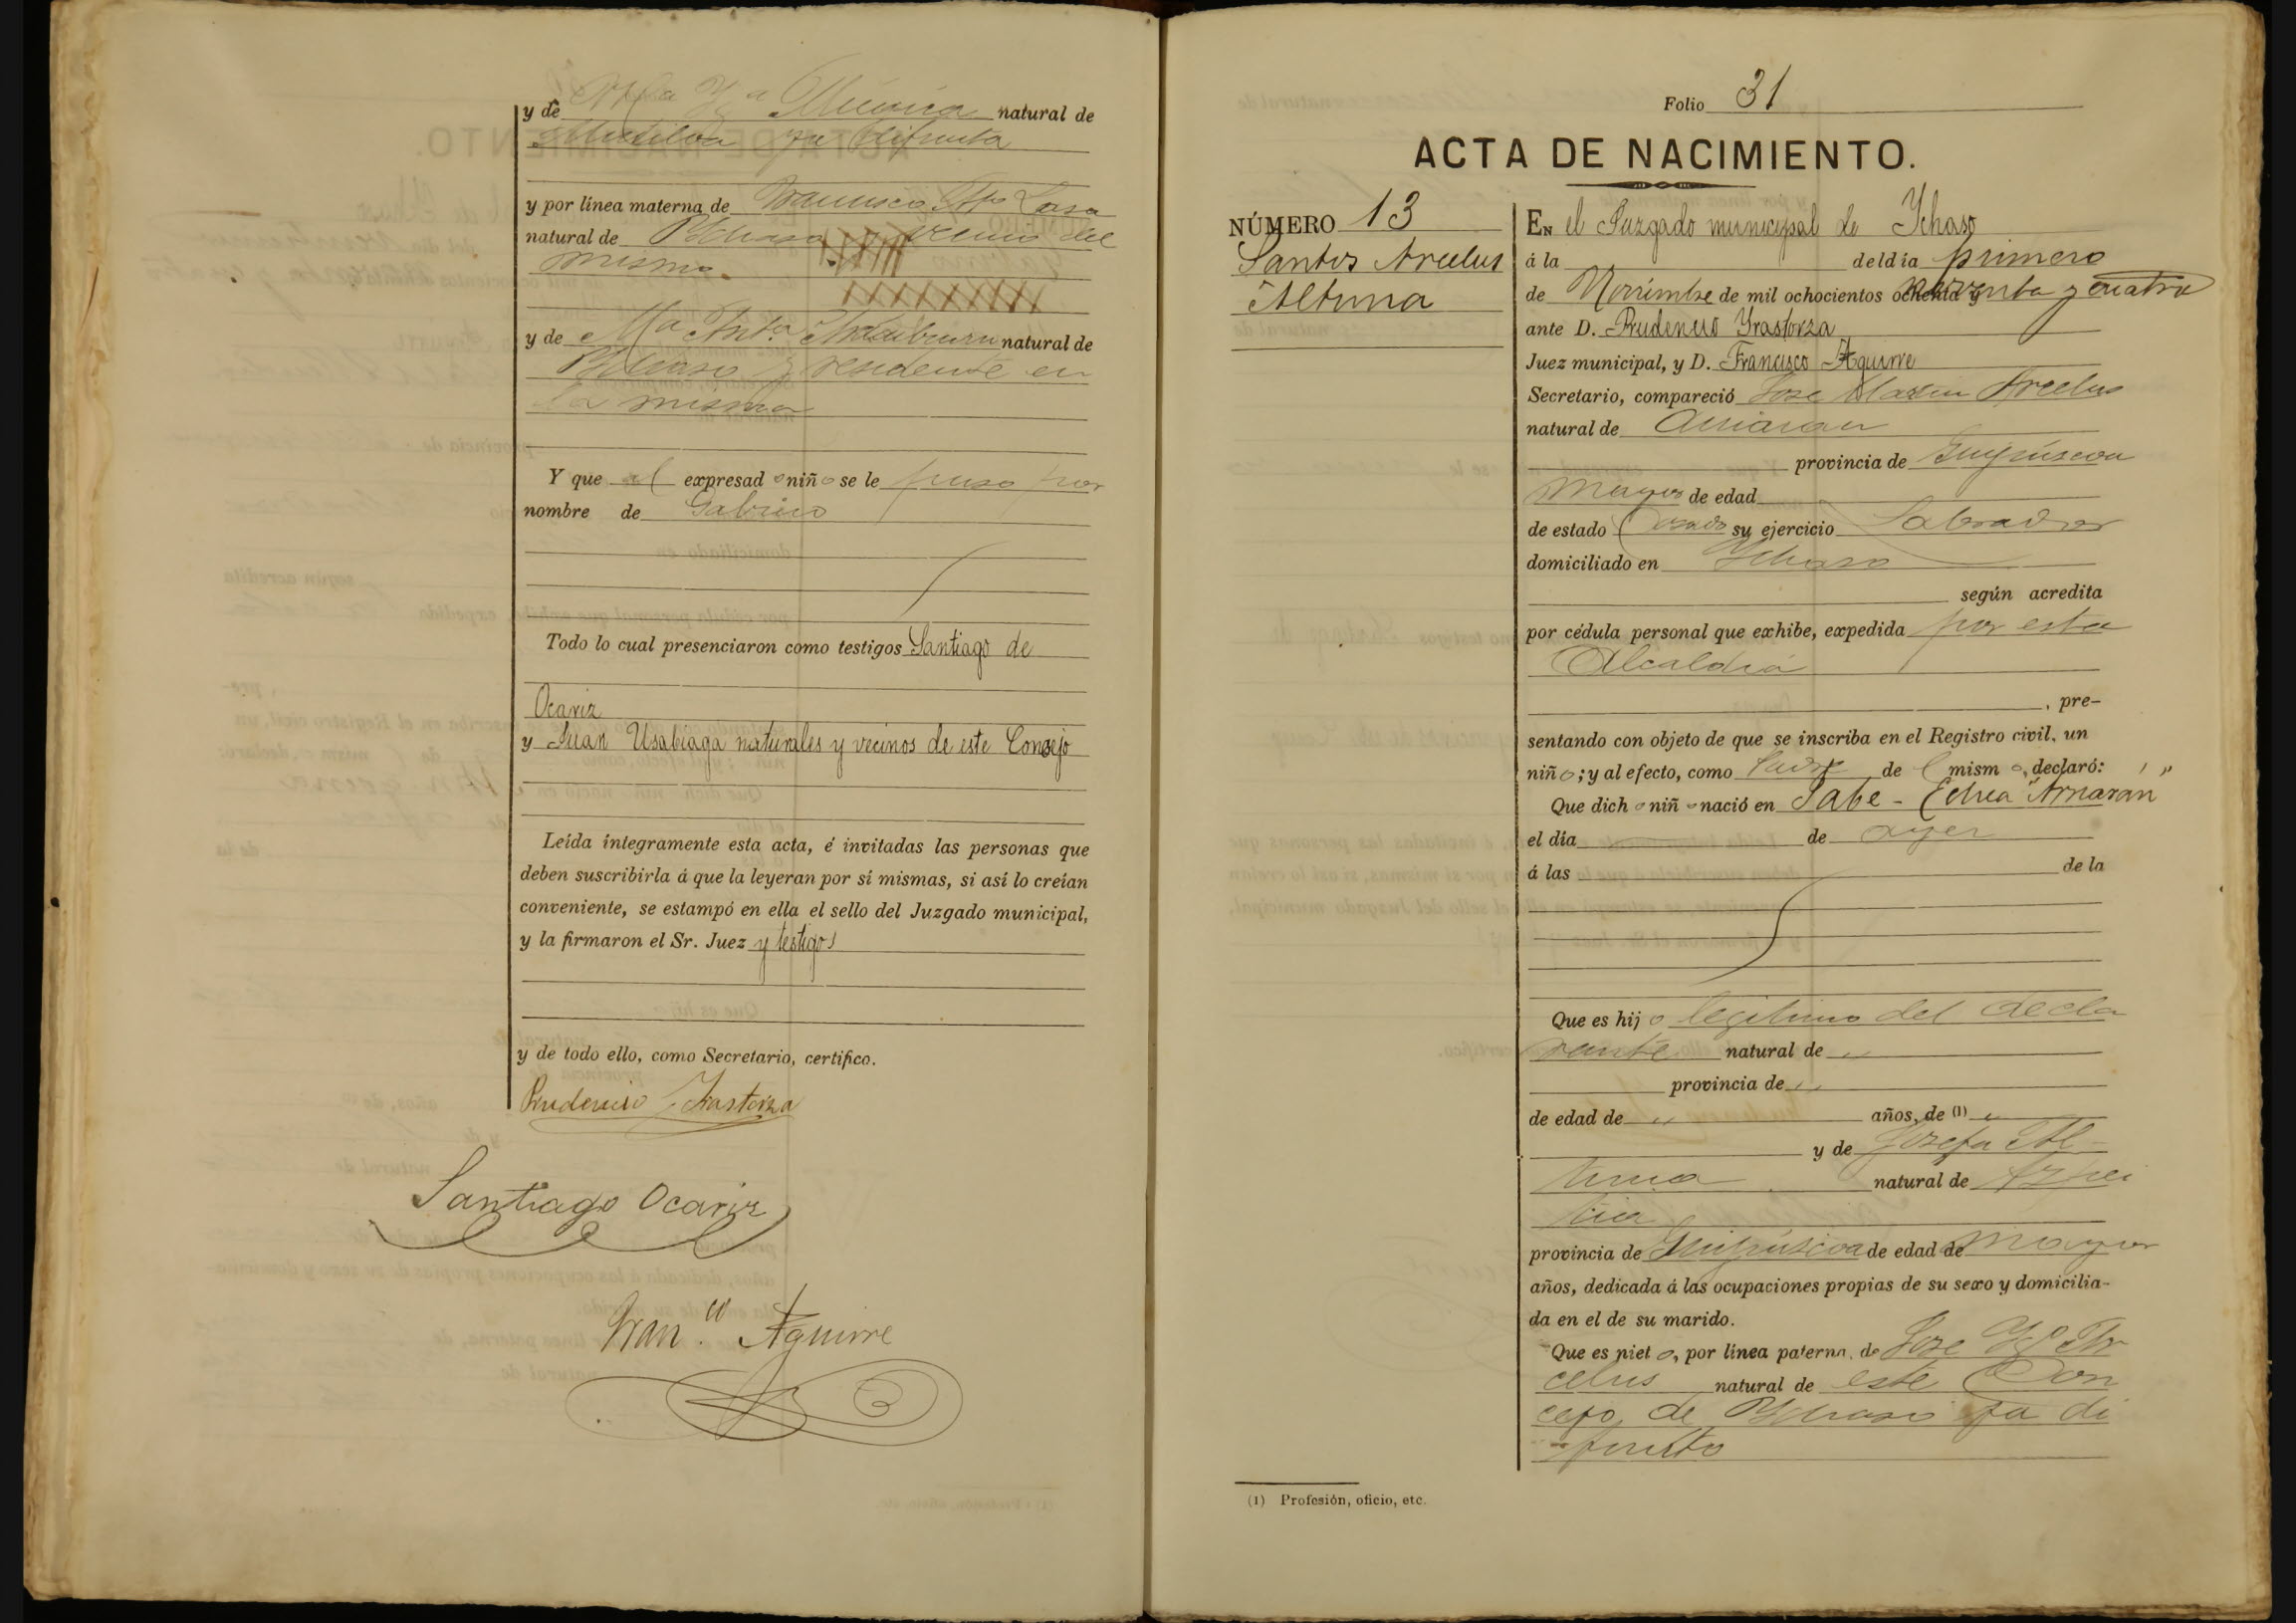 y de M.ª Y.ª Múxica natural de
Mutiloa ya difunta
y por línea materna de Francisco Ant.º Lasa
natural de Ychaso y vecino del
mismo.
y de M.ª Ant.ª natural de
Ychaso y residente en
la misma
Y que al expresado niño se le puso por
nombre de Gabino
Todo lo cual presenciaron como testigos Santiago de
Ocariz
y Juan Usabiaga naturales y vecinos de este Consejo
Leída íntegramente esta acta, é invitadas las personas que
deben suscribirla á que la leyeran por sí mismas, si así lo creían
conveniente, se estampó en ella el sello del Juzgado municipal,
y la firmaron el Sr. Juez y testigos
y de todo ello, como Secretario, certifico.
Prudencio Yrastorza
Santiago Ocariz
Fran.co Aguirre
Folio 31
ACTA DE NACIMIENTO.
NÚMERO 13
Santos Arcelus
Altuna
EN el Juzgado municipal de Ychaso
á la del día primero
de Noviembre de mil ochocientos ochenta y noventa y cuatro
ante D. Prudencio Yrastorza
Juez municipal, y D. Francisco Aguirre
Secretario, compareció Jose Martin Arcelus
natural de Arriaran
provincia de Guipúscoa
Mayor de edad
de estado Casado su ejercicio Labrador
domiciliado en Ychaso
según acredita
por cédula personal que exhibe, expedida por esta
Alcaldia
, pre-
sentando con objeto de que se inscriba en el Registro civil, un
niño; y al efecto, como Padre del mismo, declaró:
Que dicho niño nació en Sabe-Echea "Arriaran"
el día de ayer
á las de la
Que es hijo legitimo del decla
rante natural de "
provincia de "
de edad de " años, de (1) "
y de Josefa Al-
tuna natural de Azpei
tia
provincia de Guipúscoa de edad de Mayor
años, dedicada á las ocupaciones propias de su sexo y domicilia-
da en el de su marido.
Que es nieto, por línea paterna, de Jose Y.º Ar
celus natural de este Con
cejo de Ychaso ya di
funto
(1) Profesión, oficio, etc.